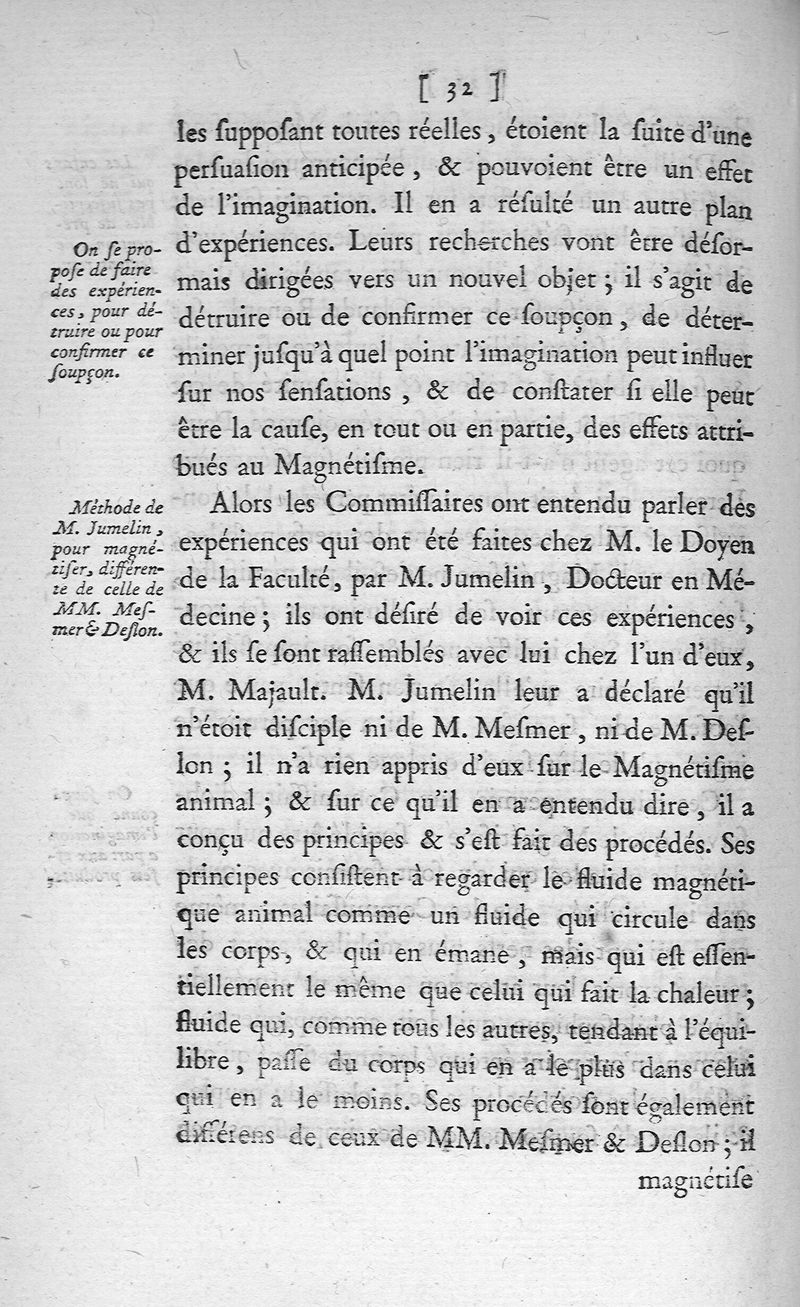 [ 32 ]
les ſuppoſant toutes réelles, étoient la ſuite d'une
perſuaſion anticipée, & pouvoient être un effet
de l'imagination. Il en a réſulté un autre plan
d'expériences. Leurs recherches vont être déſor-
mais dirigées vers un nouvel objet; il s'agit de
détruire ou de confirmer ce ſoupçon, de déter-
miner juſqu'à quel point l'imagination peut influer
ſur nos ſenſations, & de conſtater ſi elle peut
être la cauſe, en tout ou en partie, des effets attri-
bués au Magnétiſme.
On ſe pro-
poſe de faire
des expérien-
ces, pour dé-
truire ou pour
confirmer ce
ſoupçon.
Alors les Commiſſaires ont entendu parler des
expériences qui ont été faites chez M. le Doyen
de la Faculté, par M. Jumelin, Docteur en Mé-
decine; ils ont déſiré de voir ces expériences,
& ils ſe ſont raſſemblés avec lui chez l'un d'eux,
M. Majault. M. Jumelin leur a déclaré qu'il
n'étoit diſciple ni de M. Meſmer, ni de M. Deſ-
lon; il n'a rien appris d'eux ſur le Magnétiſme
animal; & ſur ce qu'il en a entendu dire, il a
conçu des principes & s'eſt fait des procédés. Ses
principes conſiſtent à regarder le fluide magnéti-
que animal comme un fluide qui circule dans
les corps, & qui en émane, mais qui eſt eſſen-
tiellement le même que celui qui fait la chaleur;
fluide qui, comme tous les autres, tendant à l'équi-
libre, paſſe du corps qui en a le plus dans celui
qui en a le moins. Ses procédés ſont également
différens de ceux de MM. Meſmer & Deſlon; il
magnétiſe
Méthode de
M. Jumelin,
pour magné-
tiſer, différen-
te de celle de
MM. Meſ-
mer & Deſlon.